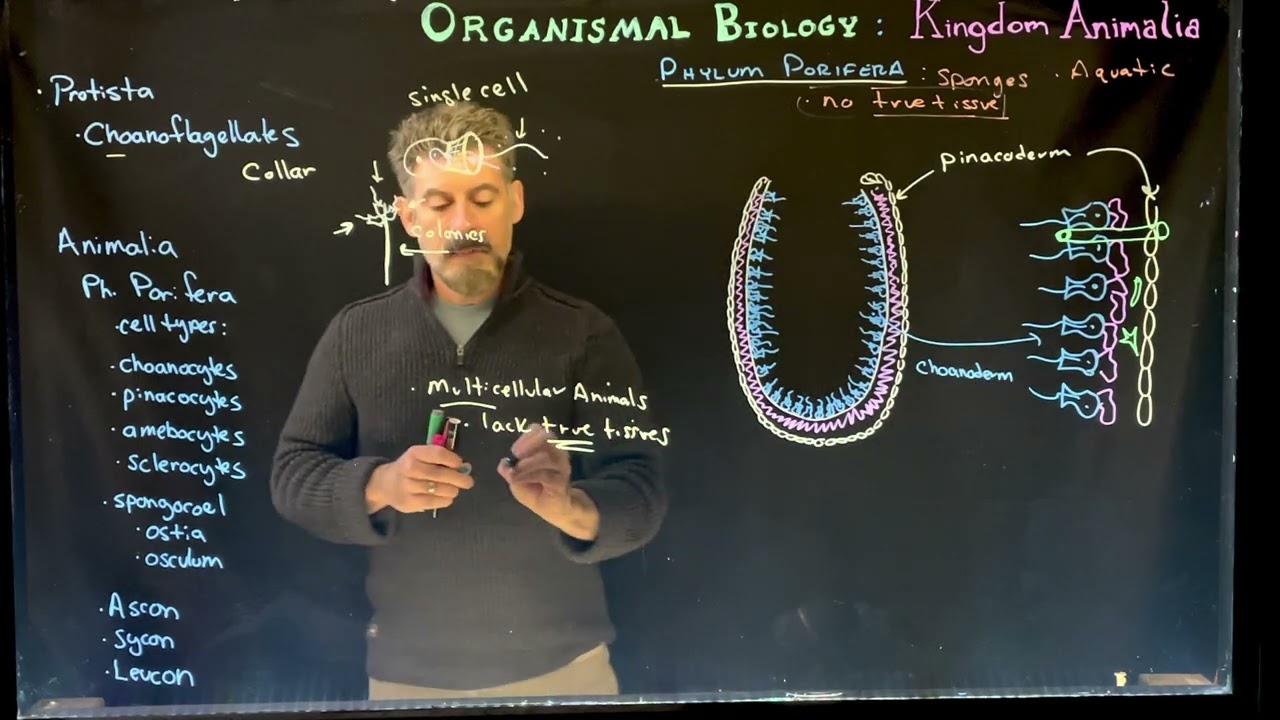 ORGANISMAL BIOLOGY : Kingdom Animalia
PHYLUM PORIFERA : sponges · Aquatic
· no true tissue
· Protista
· Choanoflagellates
Collar
single cell
colonies
Animalia
Ph. Porifera
· cell types:
· choanocytes
· pinacocytes
· amebocytes
· sclerocytes
· spongocoel
· ostia
· osculum
· Ascon
· Sycon
· Leucon
· Multicellular Animals
· lack true tissues
pinacoderm
choanoderm